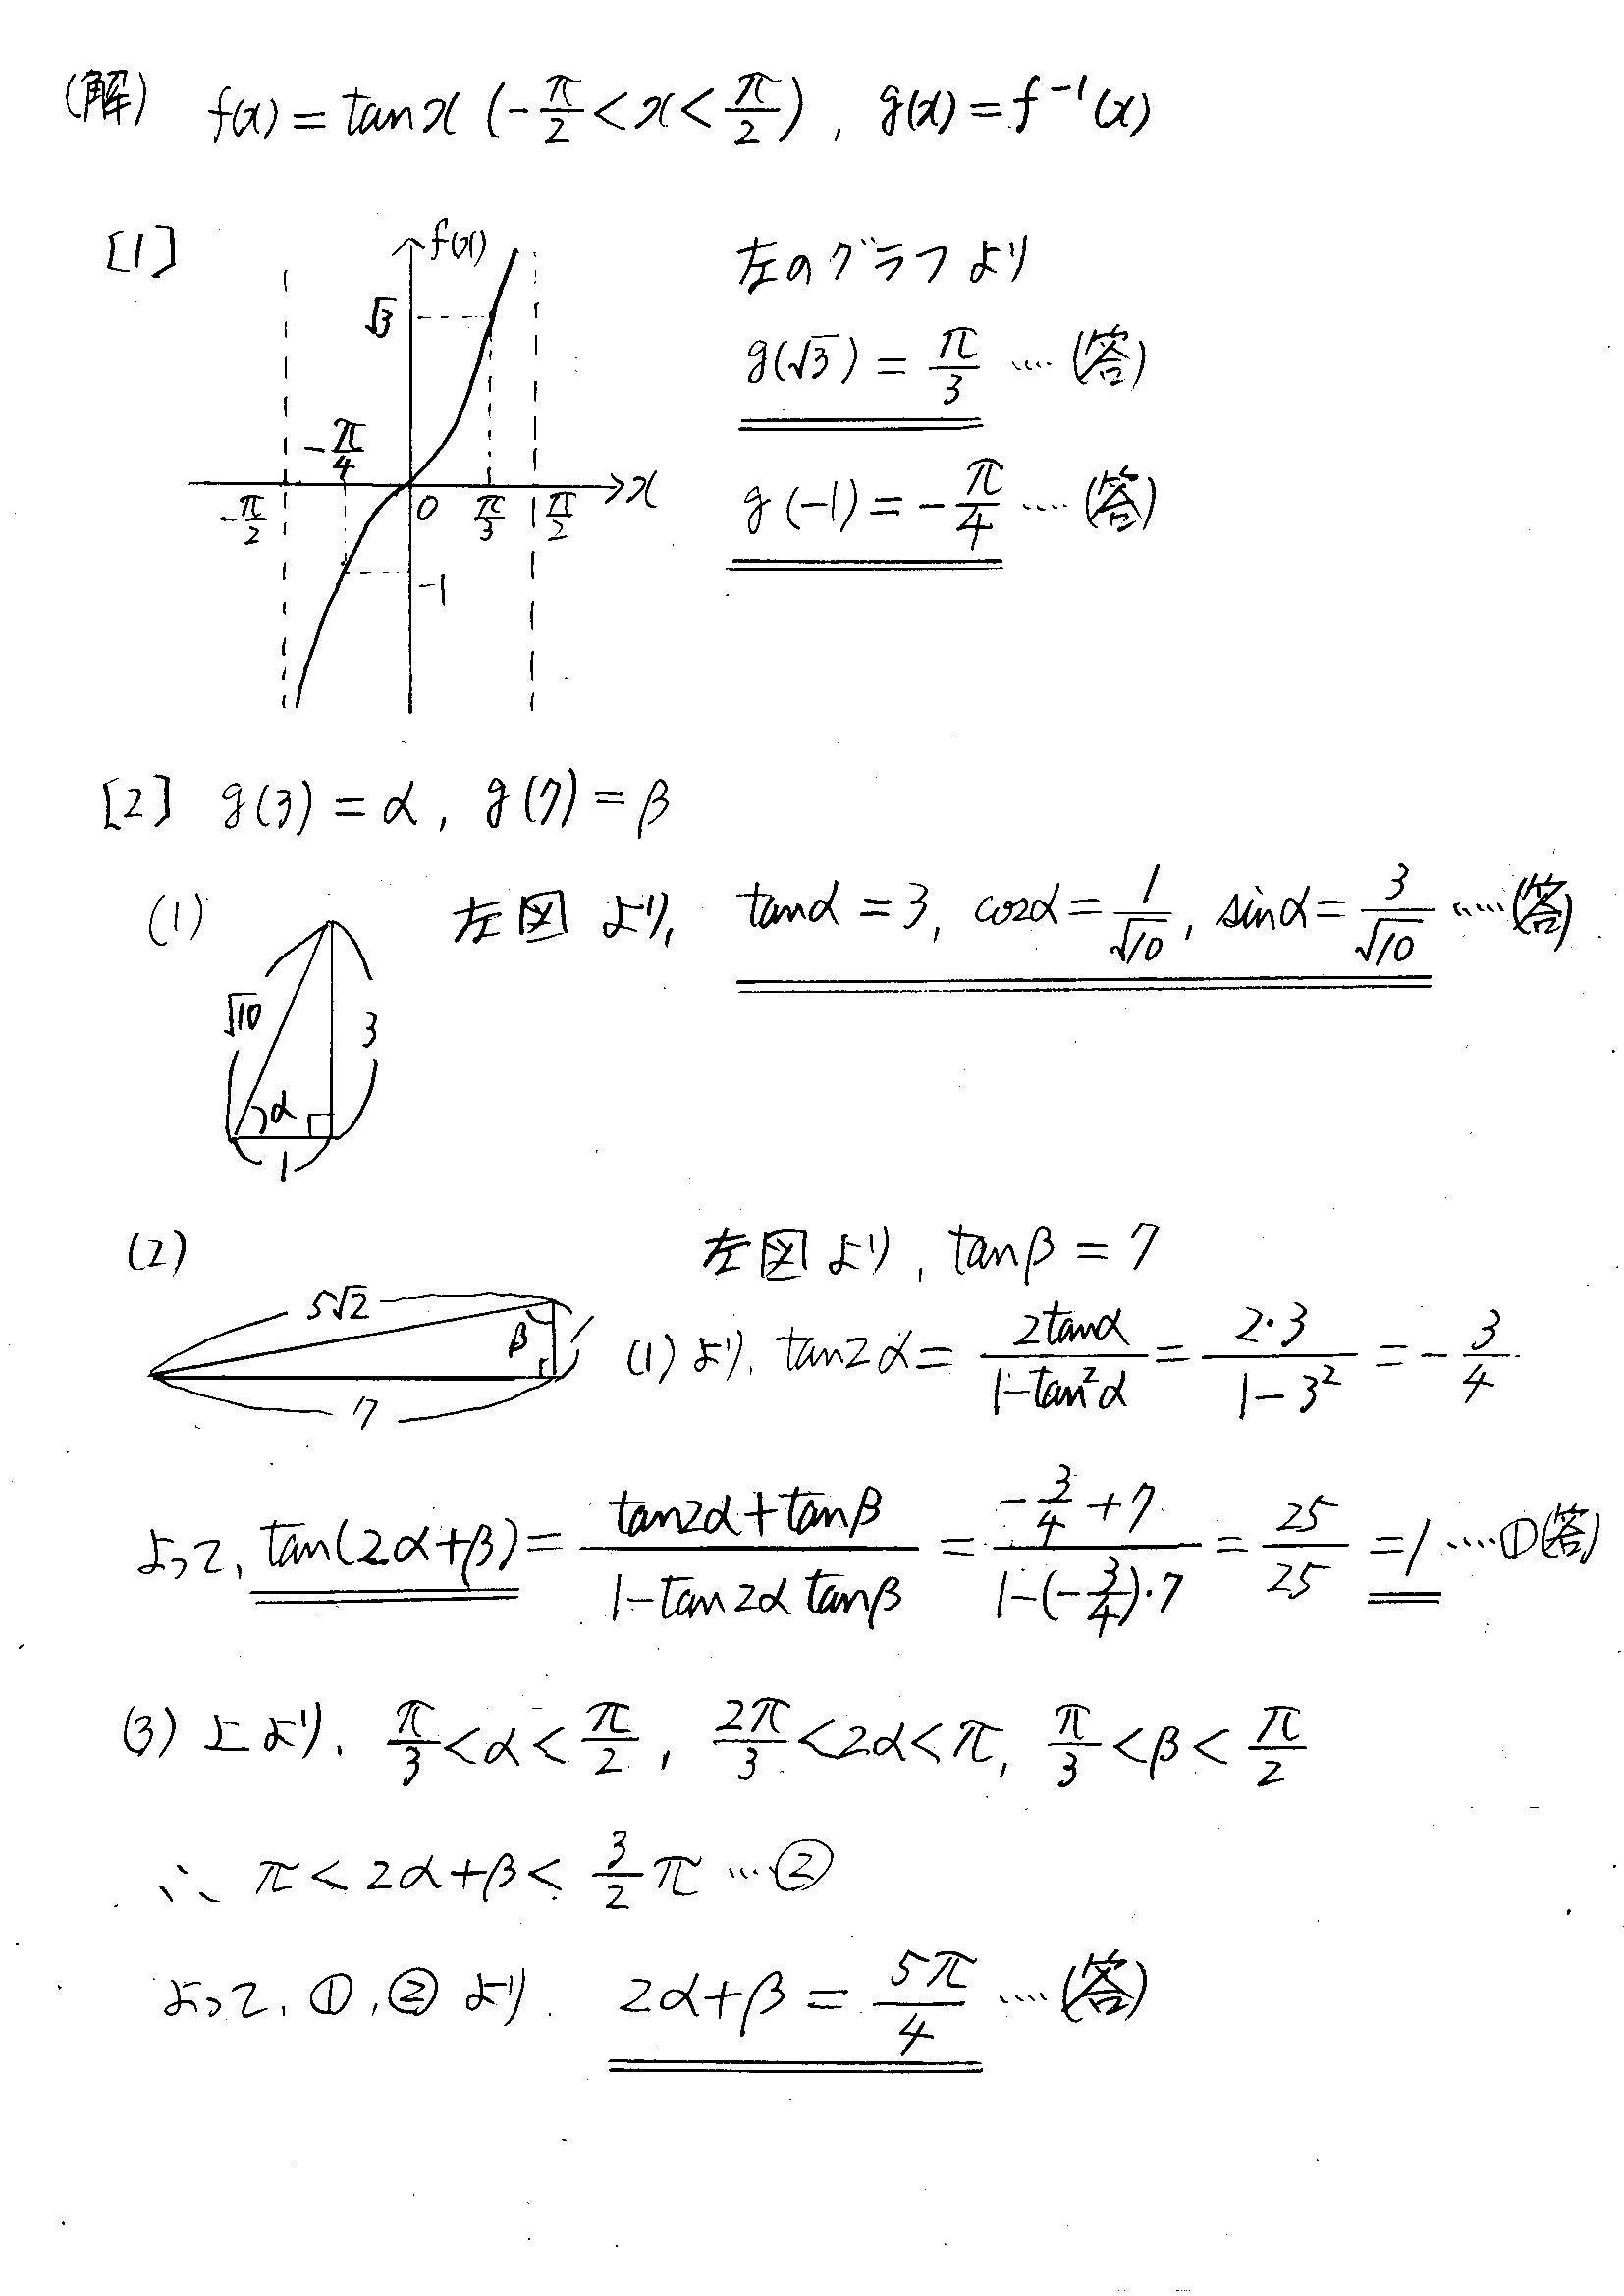 (解) f(x) = tan x (-π/2 < x < π/2), g(x) = f⁻¹(x)
[1]
f(x)
√3
-π/4
-π/2
0
π/3
π/2
x
-1
左のグラフより
g(√3) = π/3 ……(答)
g(-1) = -π/4 ……(答)
[2] g(3) = α, g(7) = β
(1)
√10
3
α
1
左図より, tanα = 3, cosα = 1/√10, sinα = 3/√10 ……(答)
(2)
5√2
β
1
7
左図より, tanβ = 7
(1)より, tan2α = 2tanα/(1-tan²α) = 2・3/(1-3²) = -3/4
よって, tan(2α+β) = (tan2α+tanβ)/(1-tan2α tanβ) = (-3/4+7)/(1-(-3/4)・7) = 25/25 = 1 ……①(答)
(3) 上より, π/3 < α < π/2, 2π/3 < 2α < π, π/3 < β < π/2
∴ π < 2α+β < 3/2 π …②
よって, ①, ②より 2α+β = 5π/4 ……(答)